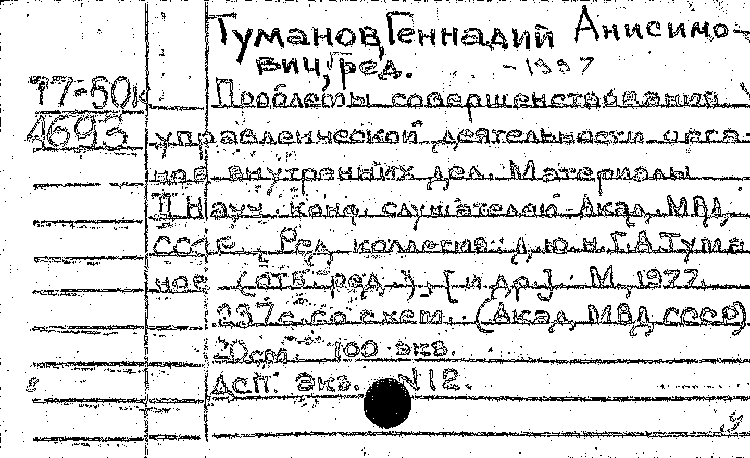 Туманов, Геннадий Анисимо-
вич, ред. -1997
77-50к Проблемы совершенствования
4693 управленческой деятельности орга-
нов внутренних дел. Материалы
II Науч. конф. слушателей Акад. МВД
СССР. Ред. коллегия: д.ю.н. Г.А. Тума
нов (отв. ред.), [и др.]. М., 1977.
237 с. со схем. (Акад. МВД СССР)
20 см. 100 экз.
8 ДСП. Экз. N12.
у